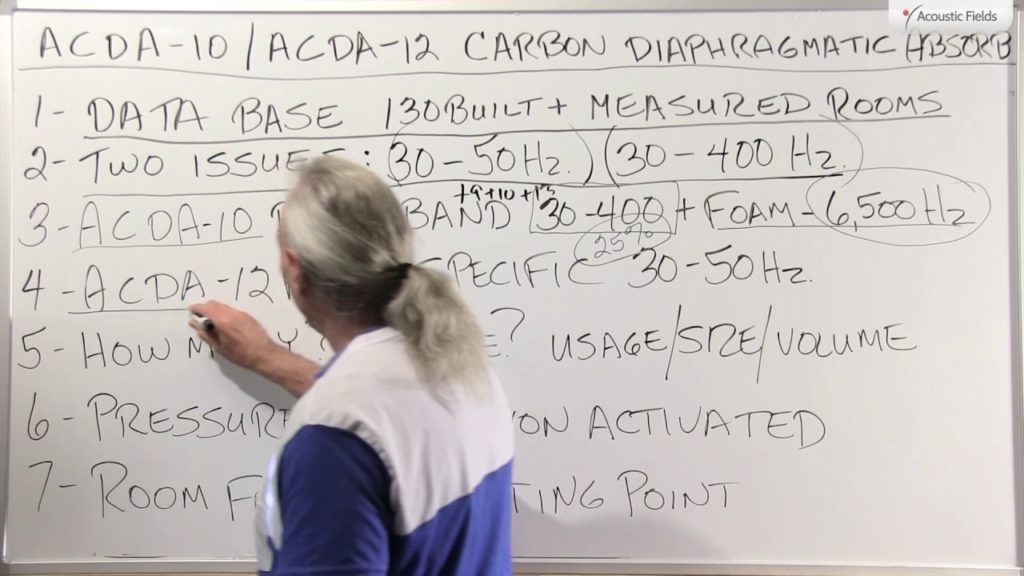 Acoustic Fields
ACDA-10/ACDA-12 CARBON DIAPHRAGMATIC ABSORB
1- DATA BASE 130 BUILT + MEASURED ROOMS
2- TWO ISSUE : (30-50Hz.) (30-400 Hz.)
+9+10+13
3- ACDA-10 BAND 30-400 + FOAM - 6,500Hz
25%
4- ACDA-12 SPECIFIC 30-50Hz.
5- HOW M Y E? USAGE/SIZE/VOLUME
6- PRESSURI ON ACTIVATED
7- ROOM F TING POINT